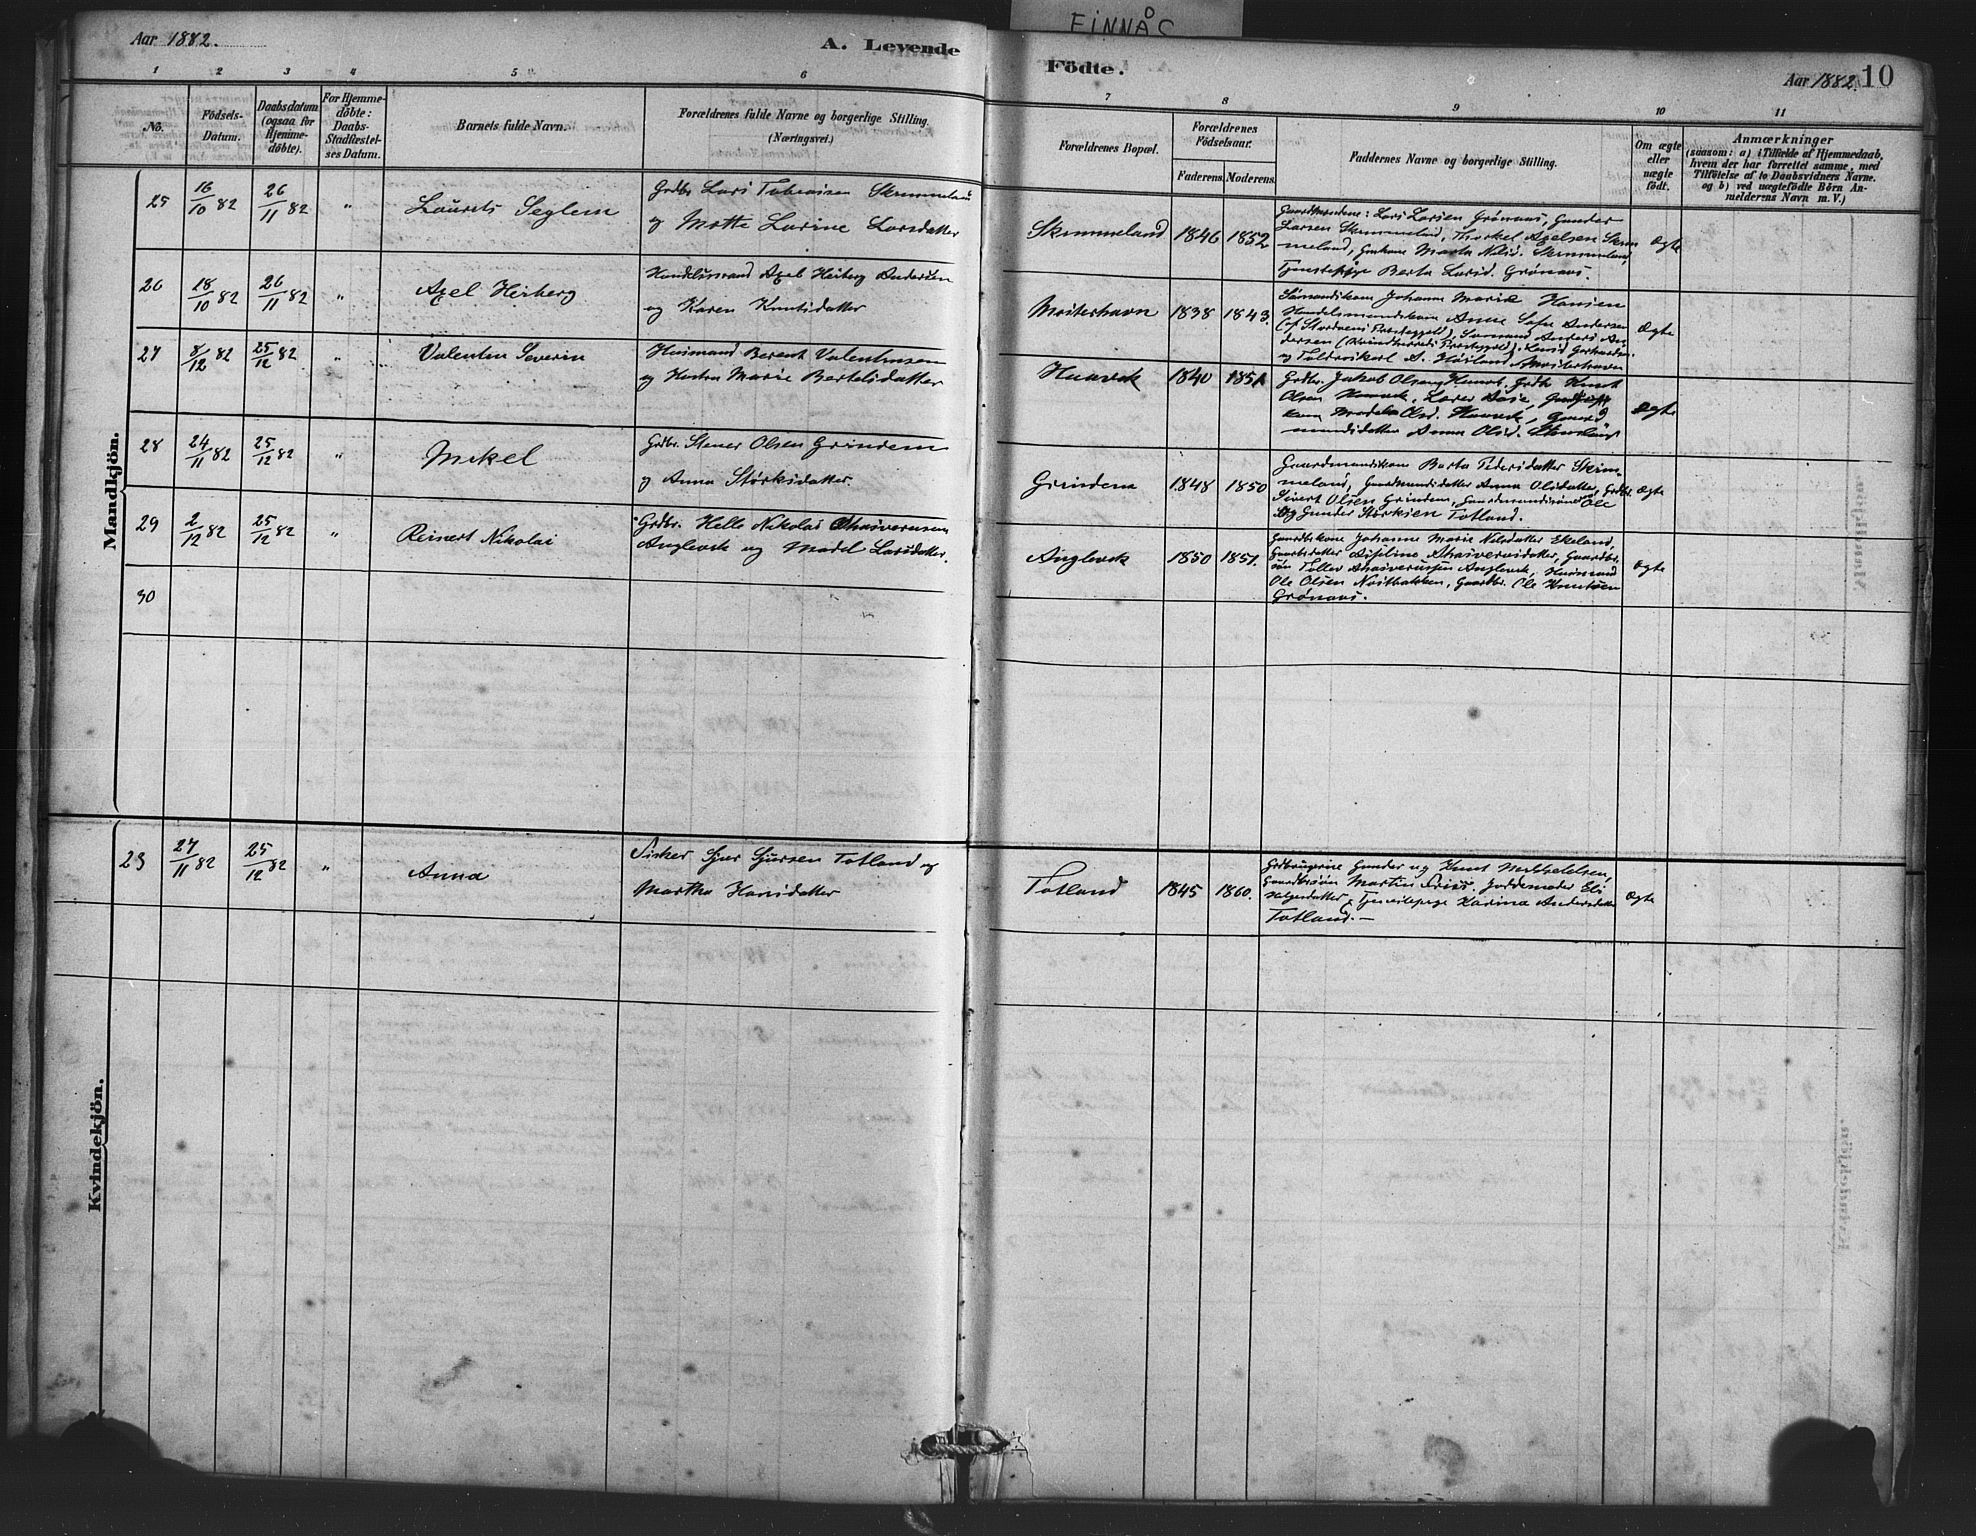 FINNÅS
Aar 1882.
A. Levende
Födte.
Aar 1882. 10
1 2 3 4 5 6 7 8 9 10 11
No.
Födsels-
Datum.
Daabsdatum
(ogsaa for
Hjemme-
döbte).
For Hjemme-
döbte:
Daabs-
Stadfæstel-
ses Datum.
Barnets fulde Navn.
Forældrenes fulde Navne og borgerlige Stilling.
(Næringsvei.)
Forældrenes Bopæl.
Forældrenes
Födselsaar.
Faderens. Moderens.
Faddernes Navne og borgerlige Stilling.
Om ægte
eller
uægte
födt.
Anmærkninger
(saasom: a) i Tilfælde af Hjemmedaab,
hvem der har forrettet samme, med
Tilföielse af to Daabsvidners Navne.
og b) ved uægtefödte Börn An-
melderens Navn m. V.)
Mandkjön.
25 16/10 82 26/11 82 " Laurits Seglem
Grdbr. Lars Tobiasen Skimmeland
og Mette Larine Larsdatter
Skimmeland 1846 1852
Gaardmændene: Lars Larsen Grønaas, Gunder
Larsen Skimmeland, Thorkel Axelsen Skim
meland, Marta Nilsd. Skimmeland,
Tjenestepige Berta Larsd. Grønaas.
Ægte
26 18/10 82 26/11 82 " Axel Heiberg
Handelsmand Axel Heiberg Andersen
og Karen Knutsdatter
Mosterhavn 1838 1843.
Sømandskone Johanne Marie Hansen
Handelsmandskone Anne Sofie Andersen
(af Stordøens Præstegjeld), Sømand Anders An-
dersen
A. Høiland, Mosterhavn
Ægte
27 8/12 82 25/12 82 " Valentin Severin
Husmand Berent Valentinsen
og Marie Bertelsdatter
1840 1851
Grdbr. Jakob Olsen Grdbr. Knut
Olsen
Olsd.
mundsdatter Anna Olsd.
Ægte
28 24/11 82 25/12 82 " Mikel
Grdbr. Stener Olsen Grindem
og Anna Størksdatter.
Grindem 1848 1850
Gaardmandskone Berta Pedersdatter Skim-
meland, Gaardmandsdatter Anna Olsdatter, Grdbr.
Sivert Olsen Grindem, Gaardmandssønner Ole
og Gunder Størksen Totland.
Ægte
29 2/12 82 25/12 82 " Reinert Nikolai
Grdbr. Helle Nikolai Ahasverusen
Anglevik og Madel Larsdatter.
Anglevik 1850 1851.
Gaardbkone Johanne Marie Nilsdatter Ekeland,
Gaardbdatter Ahasverusdatter, Gaardbr.
søn Tollev Ahasverussen Anglevik, Husmand
Ole Olsen Gaardbr. Ole Knutsen
Grønaas.
Ægte
30
Kvindekjön.
23 27/11 82 25/12 82 " Anna
Fisker Sjur Sjursen Totland og
Martha Hansdatter
Totland 1845 1860.
Grdbrugerne Gunder og Knut
Gaardbrsøn Martin Faddernoder Eli
Helgesdatter, Tjenestepige Karina Andersdatter
Totland. —
Ægte